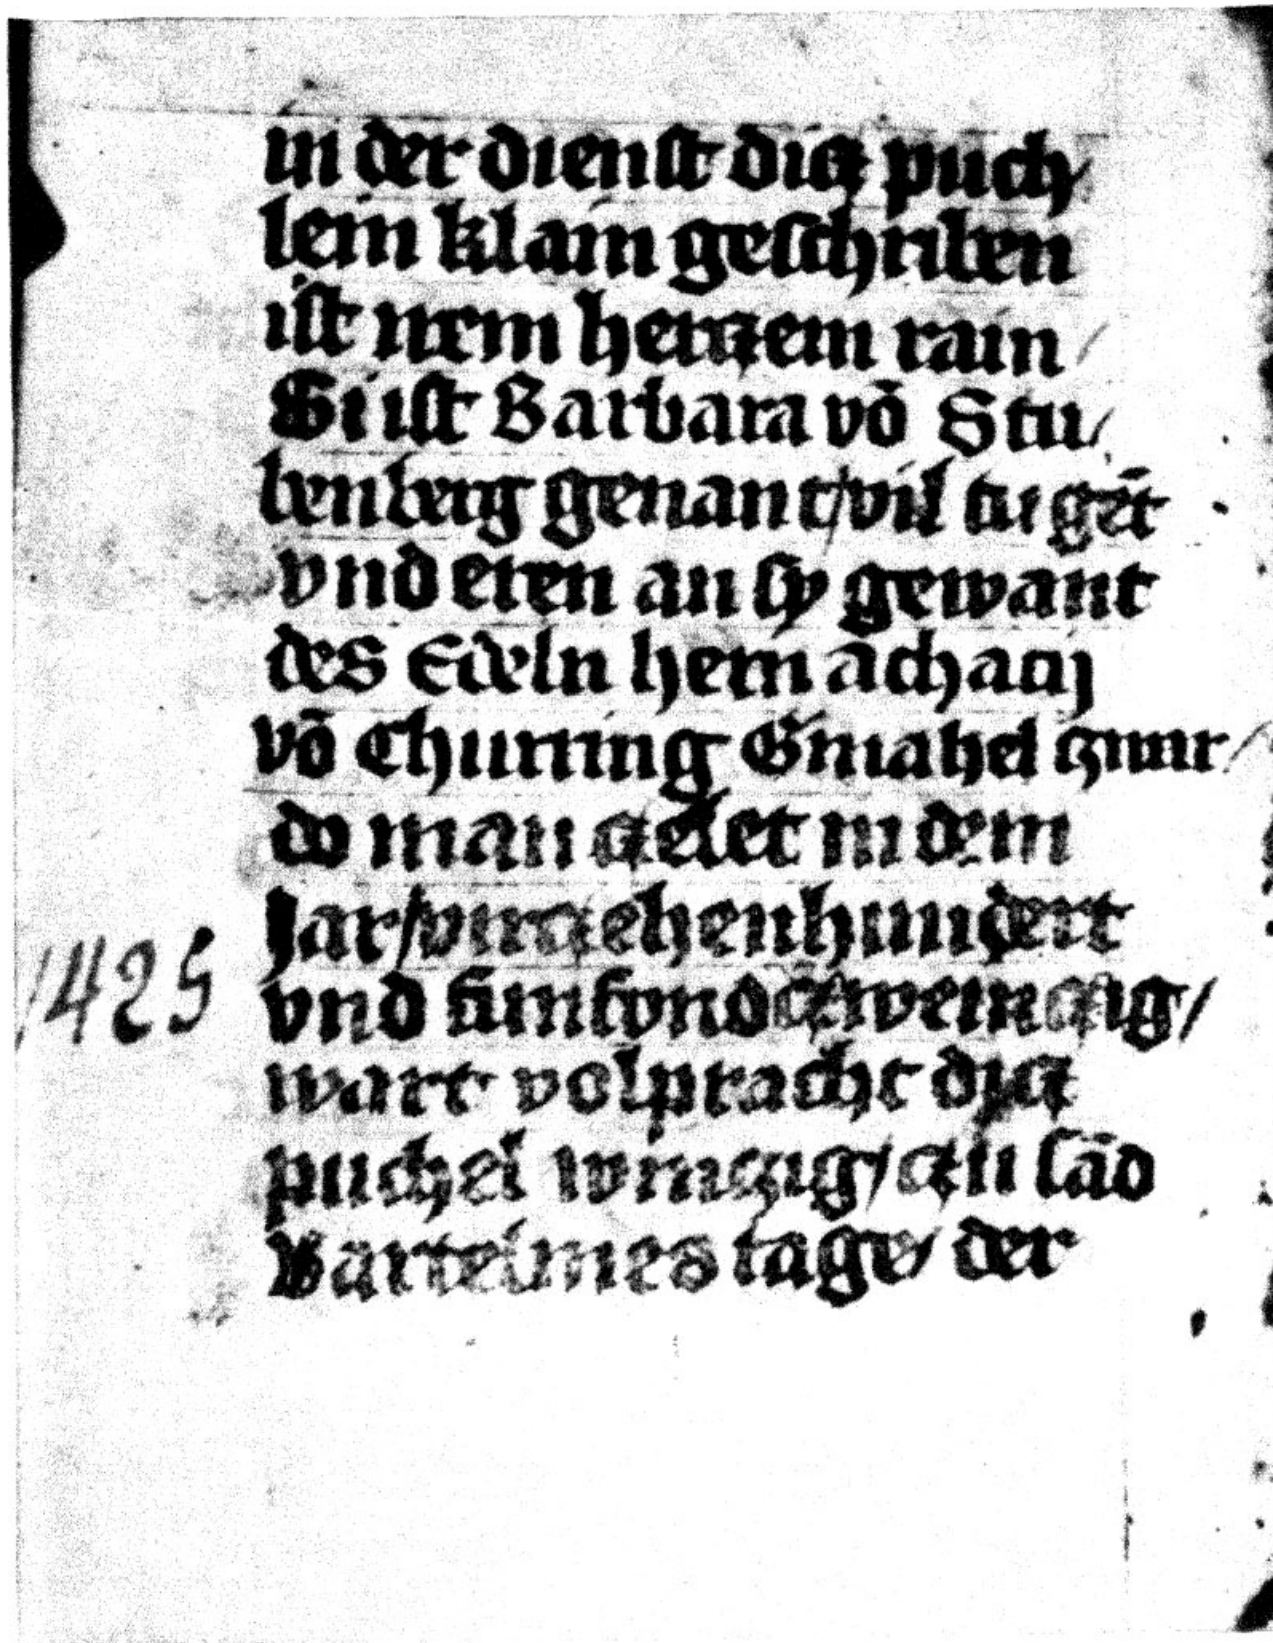 in der dienst ditz puch
lein klain geschriben
ist irem hertzem rain
Si ist Barbara võ Stu/
benberg genant/vil tugẽt
vnd eren an sy gewant
des Edeln herrn achacij
võ Churring Gmahel zwar/
do man tzelet in dem
Jar/virtzehenhundert
1425
vnd fimfvndtzweintzig/
wart volpracht ditz
puchel wintzig/tzu sãd
Bartelmes tage/ der